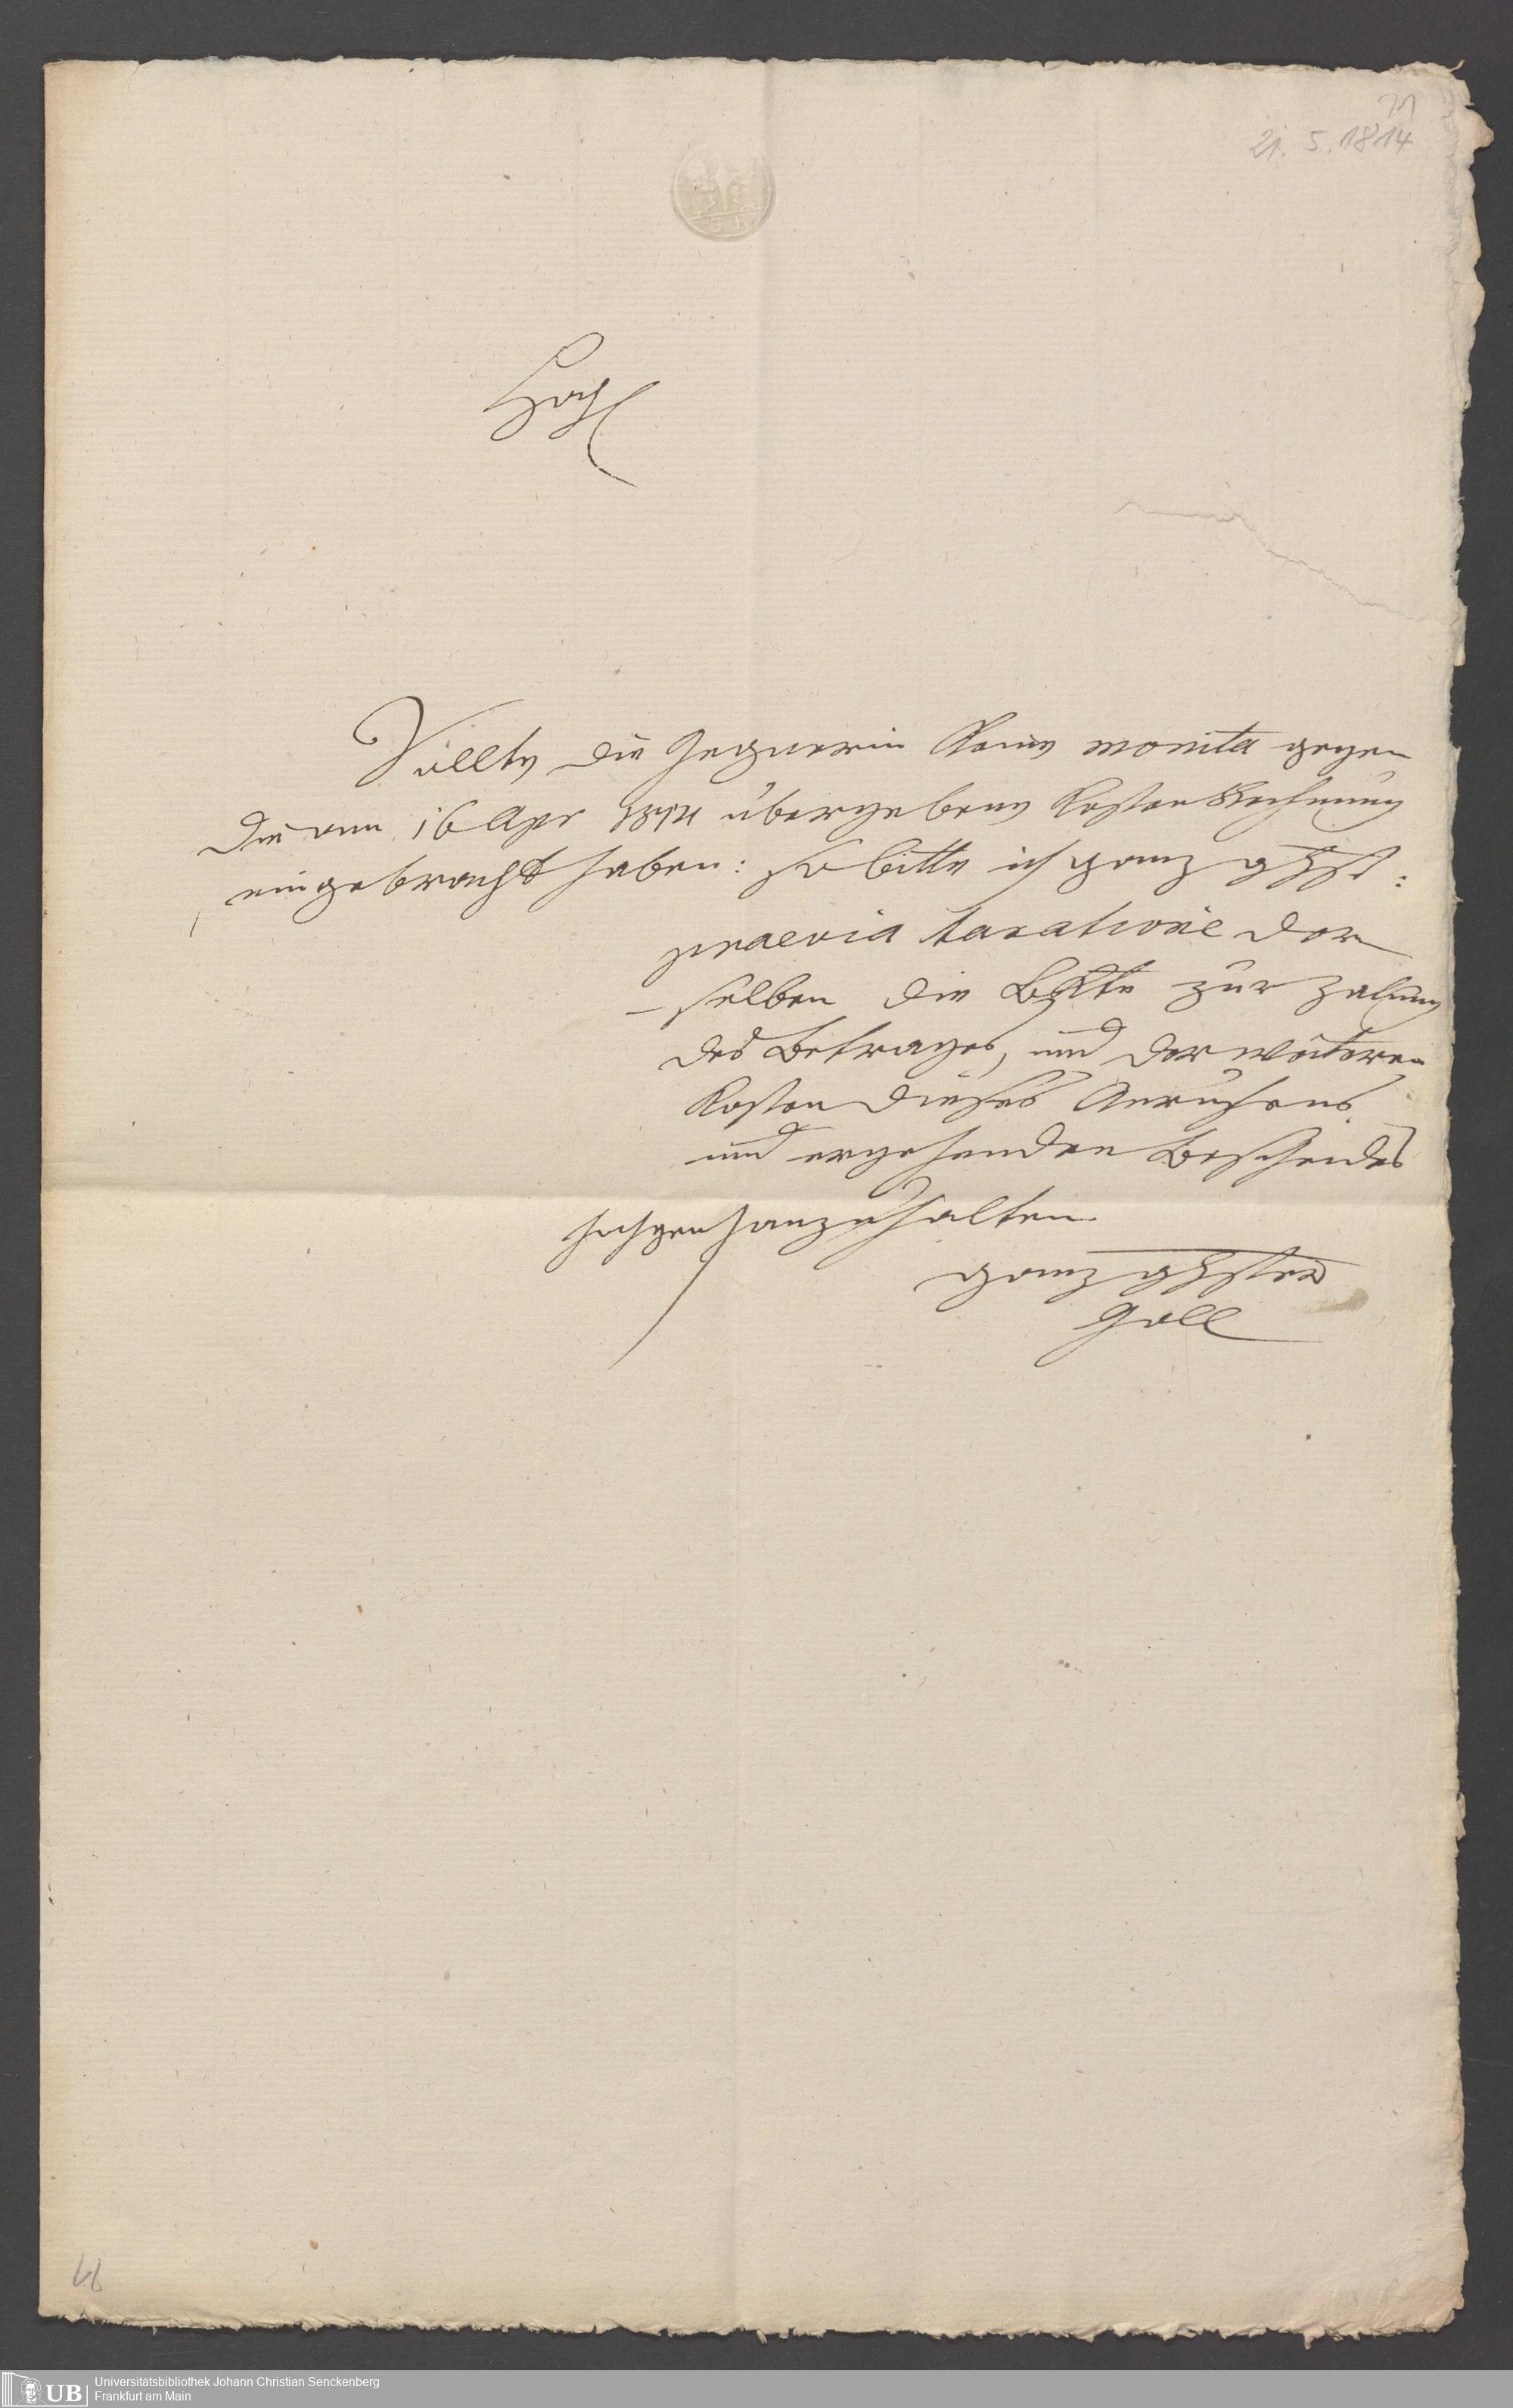 71
21. 5. 1814
Hoch
Sollte die Gegnerin keine monita gegen
die am 16 Apr 1814 übergebene Kosten Rechnung
eingebracht haben: so bitte ich ganz ghst:
praevia taxatione der
selben die Bkte zur Zalung
des Betrages, und der weiteren
Kosten dieses Anrufens
und ergehenden Bescheides
anzuhalten.
ganz ghster
Goll
46
UB Universitätsbibliothek Johann Christian Senckenberg
Frankfurt am Main